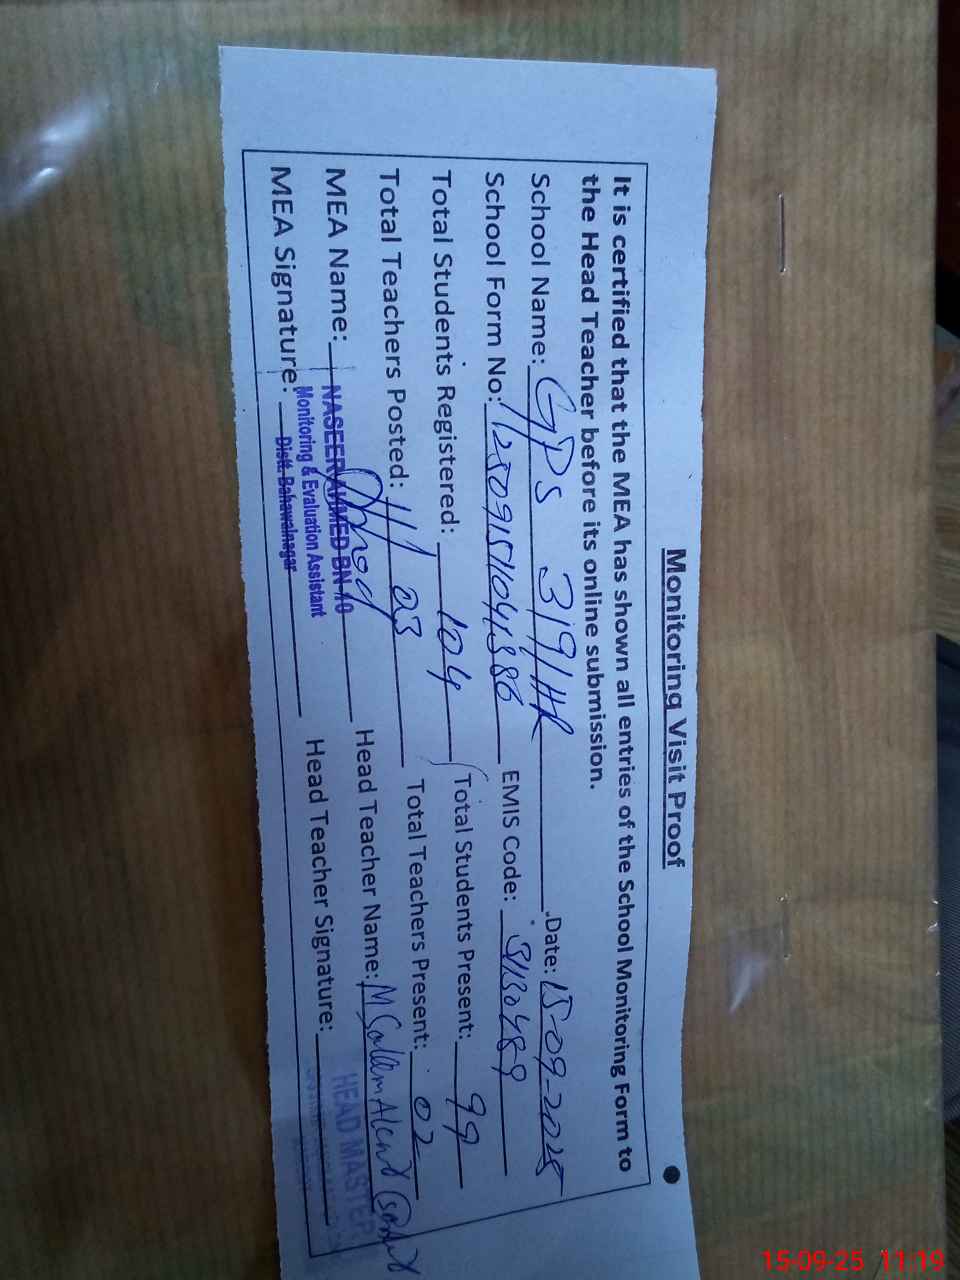 Monitoring Visit Proof
It is certified that the MEA has shown all entries of the School Monitoring Form to
the Head Teacher before its online submission.
School Name: GPS 319/HR .Date: 15-09-2025
School Form No: EMIS Code: 31130489
Total Students Registered: 104 Total Students Present: 99
Total Teachers Posted: 03 Total Teachers Present: 02
MEA Name: NASEER AHMED BN 10 Head Teacher Name: M Saleem
Monitoring & Evaluation Assistant
MEA Signature: Distt. Bahawalnagar Head Teacher Signature:
HEAD MASTER
15-09-25 11:19